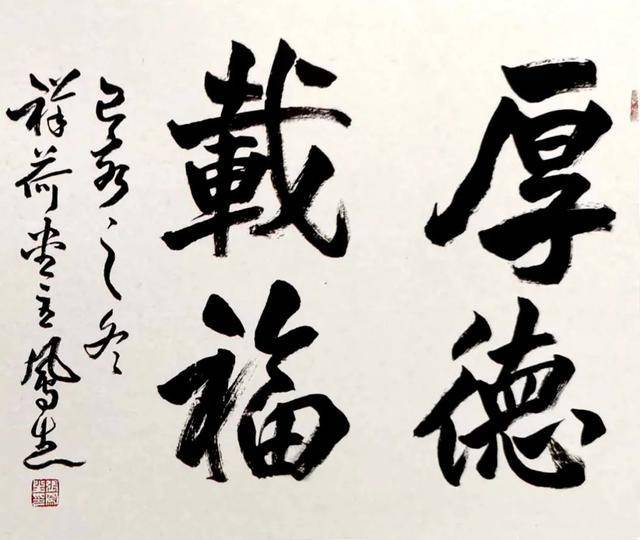 厚德
載福
己亥之冬
祥荷堂主鳳